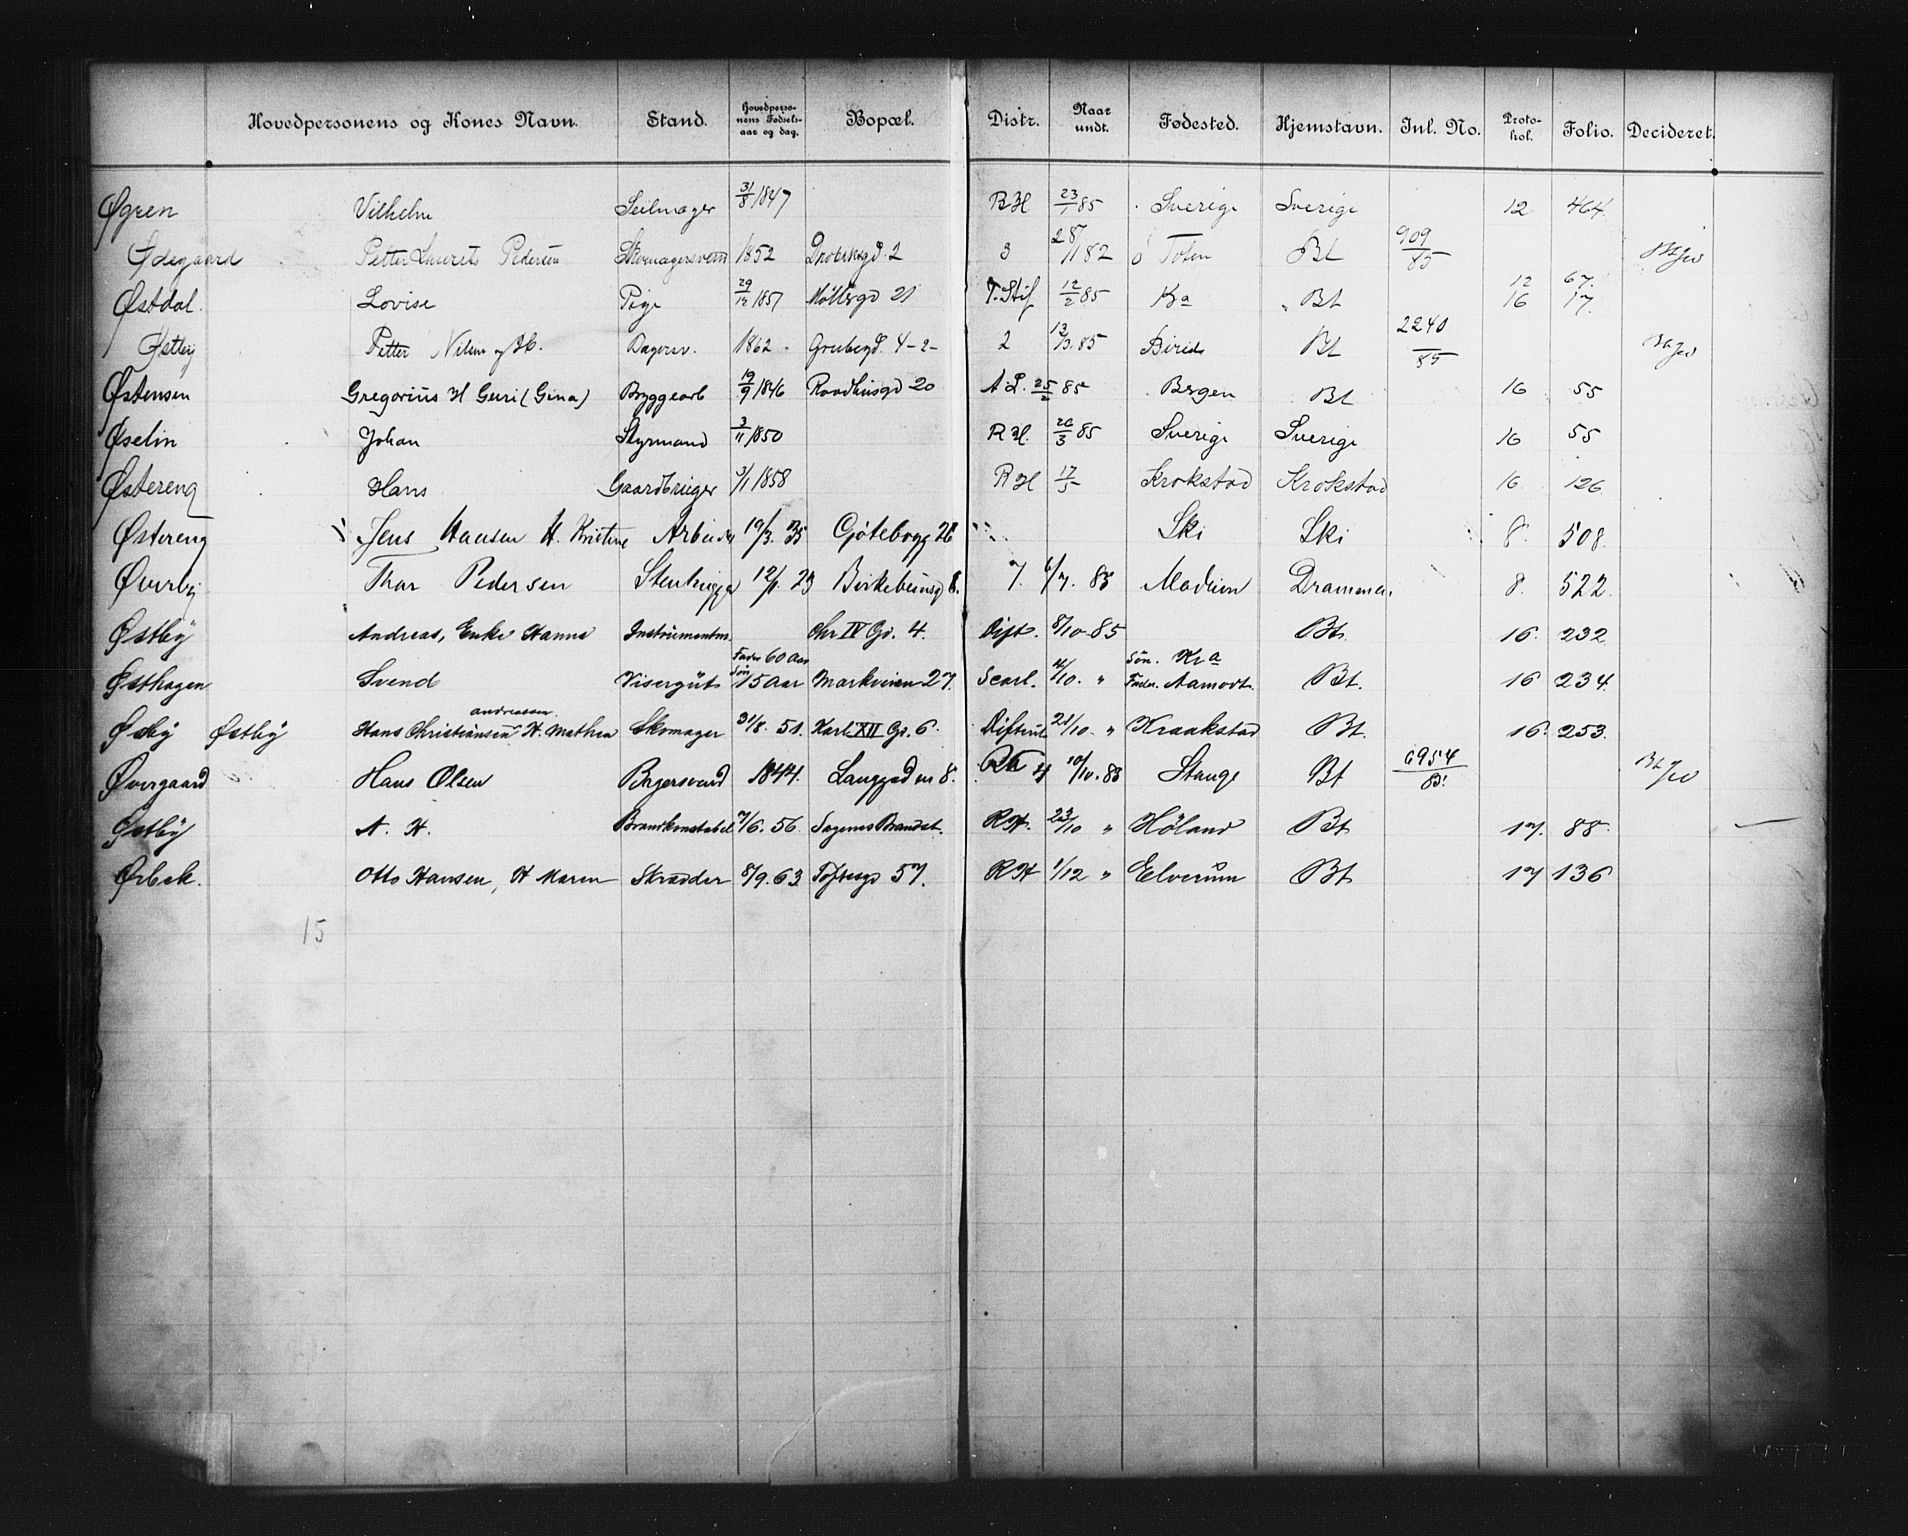 Hovedpersonens og Kones Navn. Stand. Hovedpersonens Fødselsaar og dag. Bopæl. Distr. Naar undt. Fødested. Hjemstavn. Inl. No. Protokol. Folio. Decideret.
Øgren Vilhelm Seilmager 31/8 1847 RH 23/1 85 Sverige Sverige 12 464
Ødegaard Petter Laurits Pedersen Skomagersvend 1852 2 3 28/11 82 Ø Toten Bt 909/85
Østdal Lovise Pige 29/12 1857 Møllergd 21 T. Stif 12/2 85 Kra Bt 12 16 67. 17.
Østby Petter Nilsen og H. Dagarb. 1862 Grubegd. 4-2- 2 13/3. 85 Birid Bt 2240/85
Østensen Gregorius H Guri (Gina) Byggearb 19/9 1846 Raadhusgd 20 A.L. 25/2 85 Bergen Bt 16 55
Øselin Johan Styrmand 3/11 1850 RH. 20/3 85 Sverige Sverige 16 55
Østereng Hans Gaardbruger 3/1 1858 RH 17/5 Krokstad Krokstad 16. 126
Østereng Jens Hansen H. Kristine Arbeider 19/3. 35 Gøtebogg 26 Ski Ski 8. 508.
Øverby Thor Pedersen Stenhugger 12/1. 23 Birkebeinsgd 8. 7. 6/7. 85 Modum Drammen 8. 522.
Østby Andreas, Enke Hanna Instrumentm. Chr IV Gd. 4. Dift. 8/10-85 Bt. 16. 232
Østhagen Svend Visergut Fader 60 Aar Søn 15 Aar Markveien 27. Scarl. 4/10. " Søn. Kra Fader. Aamodt. Bt. 16 234.
Øsby Østby Hans Christiansen Andreassen H. Mathea Skomager 31/8. 51. Karl XII Gd. 6. 21/10 " Kraakstad Bt. 16. 253.
Øvergaard Hans Olsen Bagersvend 1844. Langgad no 8. 4 10/10. 85 Stange Bt 6954/85
Østby A. H. Brandkonstabel 7/6. 56. Sagenes Brandst. RH. 23/10 " Høland Bt 17. 88.
Ørbek. Otto Hansen, H Maren Skrædder 8/9. 63. Toftesgd 57. RH 1/12 " Elverum Bt 17 136
15